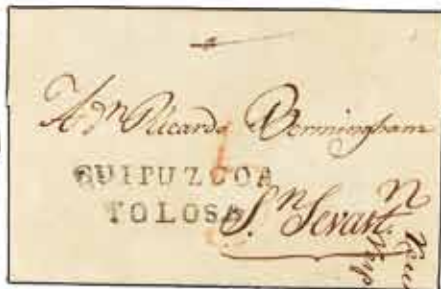 A Dn Ricardo Bermingham
GUIPUZCOA
TOLOSA
Sn Sevastn